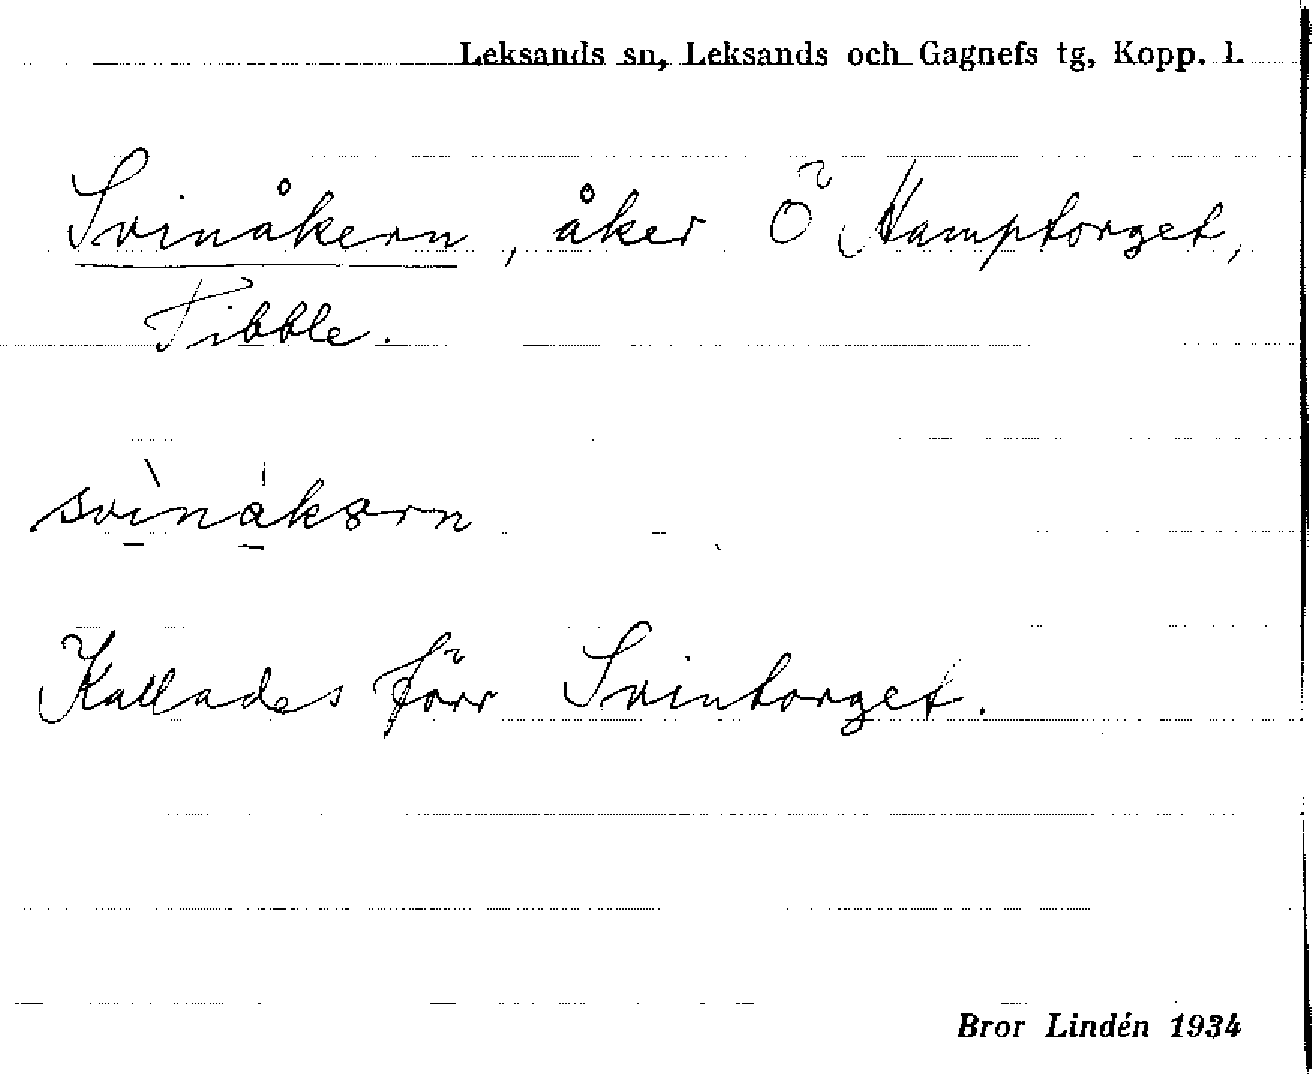 Leksands sn, Leksands och Gagnefs tg, Kopp. l.
Svinåkern, åker Ö Hamptorget,
Tibble.
svìnákərn
Kallades förr Svintorget.
Bror Lindén 1934